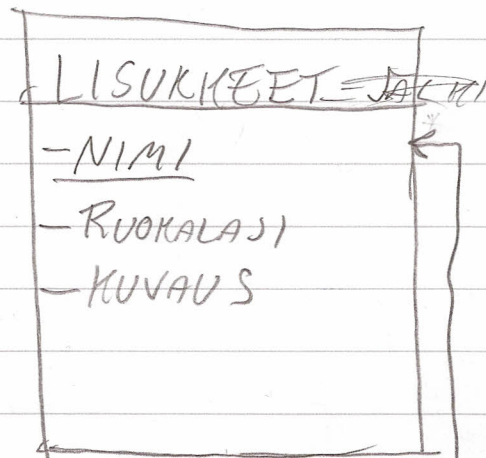 LISUKKEET
-NIMI
-RUOKALAJI
-KUVAUS